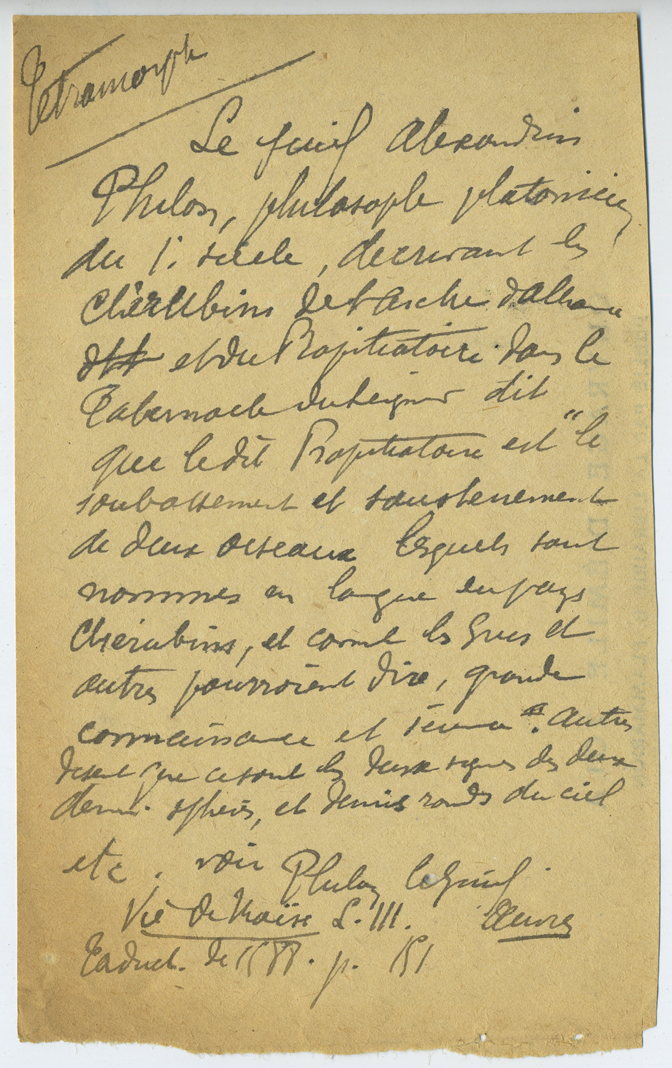 Tetramorph
Le juif Alexandrin
Philon, philosophe platonicien
du 1er siècle, decrivant les
Chérubins de l'arche d'alliance
et du Propitiatoire dans le
Tabernacle du Seigneur dit
que le dit Propitiatoire est "le
soubassement et soustenement
de deux oiseaux lesquels sont
nommes en langue du pays
Chérubins, et comme les Grecs et
autres pourroient dire, grande
connaissance et science". Autres
disent que ce sont les deux signes des deux
demi spheres, et demis ronds du ciel
etc. voir Philon le Juif
Vie de Moïse L. III. Œuvres
Traduct. de 1588. p. 151